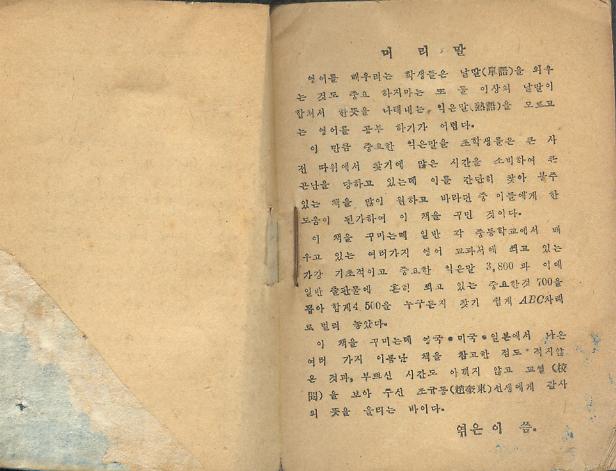 머 리 말
영어를 배우려는 학생들은 낱말(單語)을 외우
는 것도 중요 하지마는 또 둘 이상의 낱말이
합쳐서 한뜻을 나태내는 익은말(熟語)을 모르고
는 영어를 공부 하기가 어렵다.
이 만큼 중요한 익은말을 초학생들은 큰 사
전 따위에서 찾기에 많은 시간을 소비하여 큰
곤난을 당하고 있는데 이를 간단히 찾아 볼수
있는 책을 많이 원하고 바라던 중 이들에게 한
도움이 된가하여 이 책을 꾸민 것이다.
이 책을 꾸미는데 일반 각 중등학교에서 배
우고 있는 여러가지 영어 교과서에 씌고 있는
가장 기초적이고 중요한 익은말 3,800 과 이에
일반 출판물에 흔히 씌고 있는 중요한것 700을
뽑아 합계4,500을 누구든지 찾기 쉽게 ABC차례
로 벌려 놓았다.
이 책을 꾸미는데 영국•미국•일본에서 나온
여러 가지 이름난 책을 참고한 점도 적지않
은 것과, 부쁘신 시간도 아끼지 않고 교열 (校
閱)을 보아 주신 조규동(趙奎東)선생에게 감사
의 뜻을 올리는 바이다.
엮은이 씀.